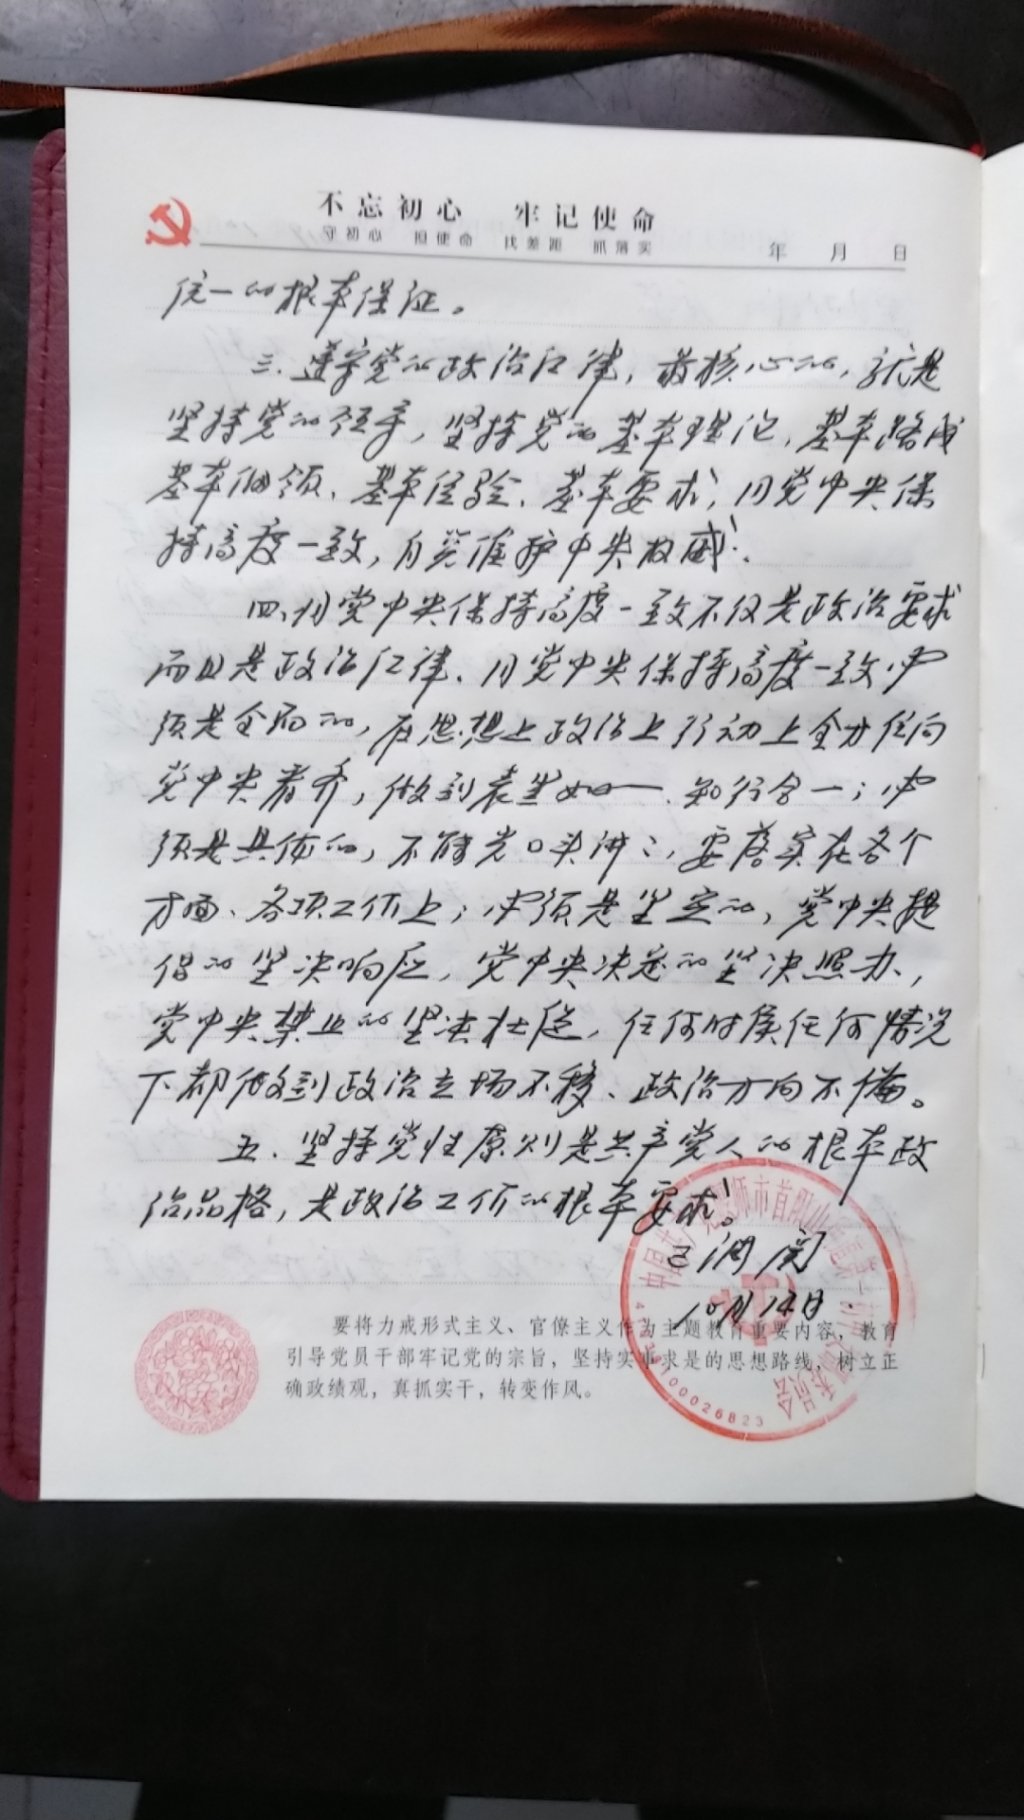 不忘初心 牢记使命
守初心 担使命 找差距 抓落实
年 月 日
统一的根本保证。
三、遵守党的政治纪律，最核心的，就是
坚持党的领导，坚持党的基本理论、基本路线
基本纲领、基本经验、基本要求，同党中央保
持高度一致，自觉维护中央权威。
四、同党中央保持高度一致不仅是政治要求
而且是政治纪律、同党中央保持高度一致必
须是全面的，在思想上政治上行动上全方位向
党中央看齐，做到表里如一、知行合一；必
须是具体的，不能光口头讲讲，要落实在各个
方面、各项工作上；必须是坚定的，党中央提
倡的坚决响应，党中央决定的坚决照办，
党中央禁止的坚决杜绝，任何时候任何情况
下都做到政治立场不移、政治方向不偏。
五、坚持党性原则是共产党人的根本政
治品格，是政治工作的根本要求。
10月14日
要将力戒形式主义、官僚主义作为主题教育重要内容，教育
引导党员干部牢记党的宗旨，坚持实事求是的思想路线，树立正
确政绩观，真抓实干，转变作风。